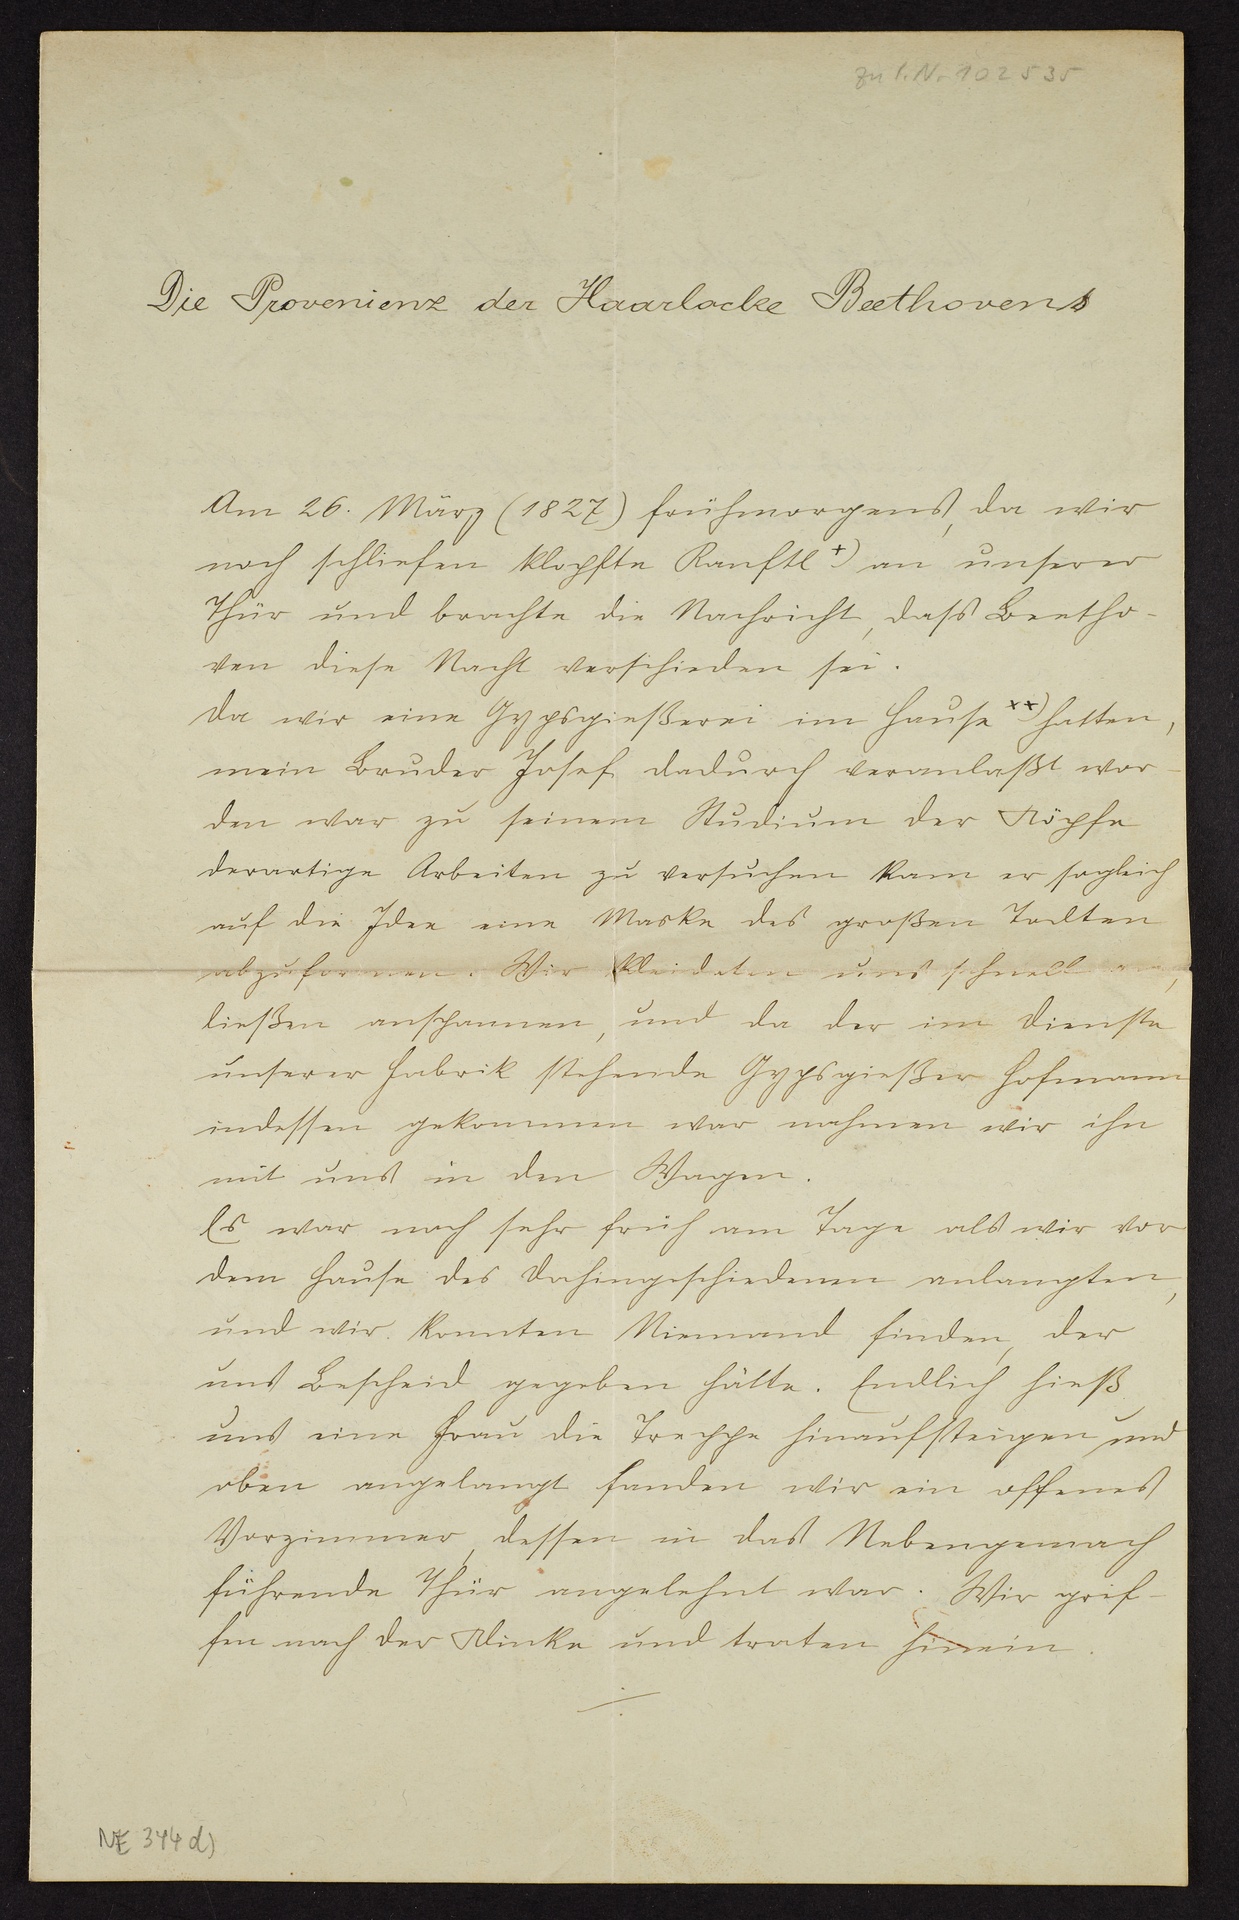 zu I. N. 102535
Die Provenienz der Haarlocke Beethovens
Am 26. März (1827) frühmorgens, da wir
noch schliefen klopfte Ranftl +) an unserer
Thür und brachte die Nachricht, dass Beetho-
ven diese Nacht verschieden sei.
Da wir eine Gypsgießerei im Hause ××) hatten,
mein Bruder Josef dadurch veranlaßt wor-
den war zu seinem Studium der Köpfe
derartige Arbeiten zu versuchen kam er sogleich
auf die Idee eine Maske des großen Todten
abzuformen. Wir kleideten uns schnell an,
ließen anspannen, und da der im Dienste
unserer Fabrik stehende Gypsgießer Hofmann
indessen gekommen war nahmen wir ihn
mit uns in den Wagen.
Es war noch sehr früh am Tage als wir vor
dem Hause des Dahingeschiedenen anlangten,
und wir konnten Niemand finden, der
uns Bescheid gegeben hätte. Endlich hieß
uns eine Frau die Treppe hinaufsteigen und
oben angelangt fanden wir ein offenes
Vorzimmer, dessen in das Nebengemach
führende Thür angelehnt war. Wir grif-
fen nach der Klinke und traten hinein.
NE 344 d)